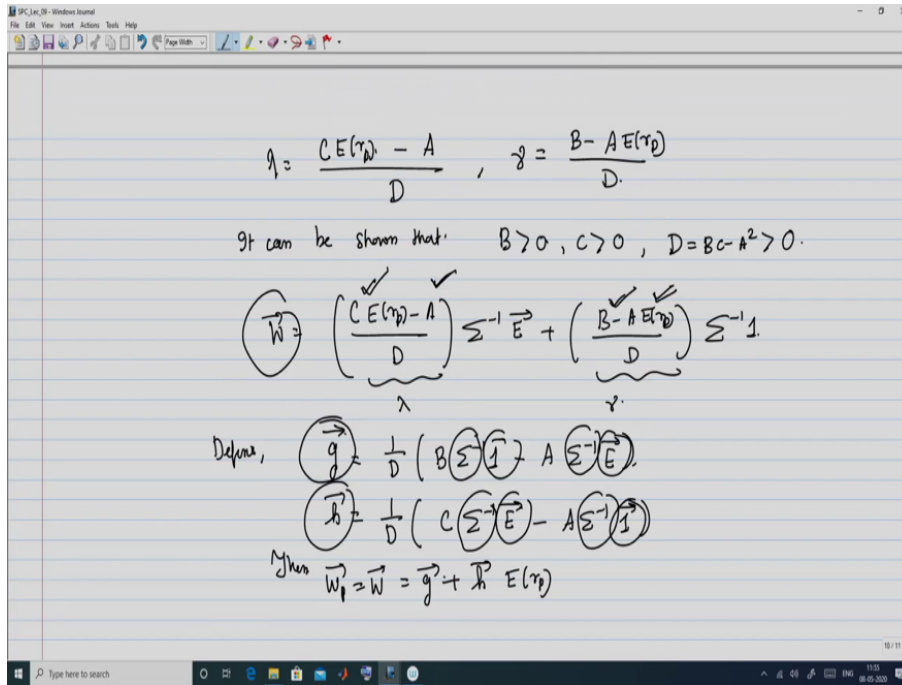 SPC_Lec_09 - Windows Journal
File Edit View Insert Actions Tools Help
Page Width
λ = (C E(r_p) - A) / D , γ = (B - A E(r_p)) / D.
It can be shown that. B > 0, C > 0, D = BC - A² > 0.
W⃗ = ((C E(r_p) - A) / D) Σ⁻¹ E⃗ + ((B - A E(r_p)) / D) Σ⁻¹ 1.
λ γ.
Define, g⃗ = 1/D (B Σ⁻¹ 1⃗ - A Σ⁻¹ E⃗).
h⃗ = 1/D (C Σ⁻¹ E⃗ - A Σ⁻¹ 1⃗)
Then W⃗_p = W⃗ = g⃗ + h⃗ E(r_p)
10 / 11
Type here to search
ENG
11:55
08-05-2020